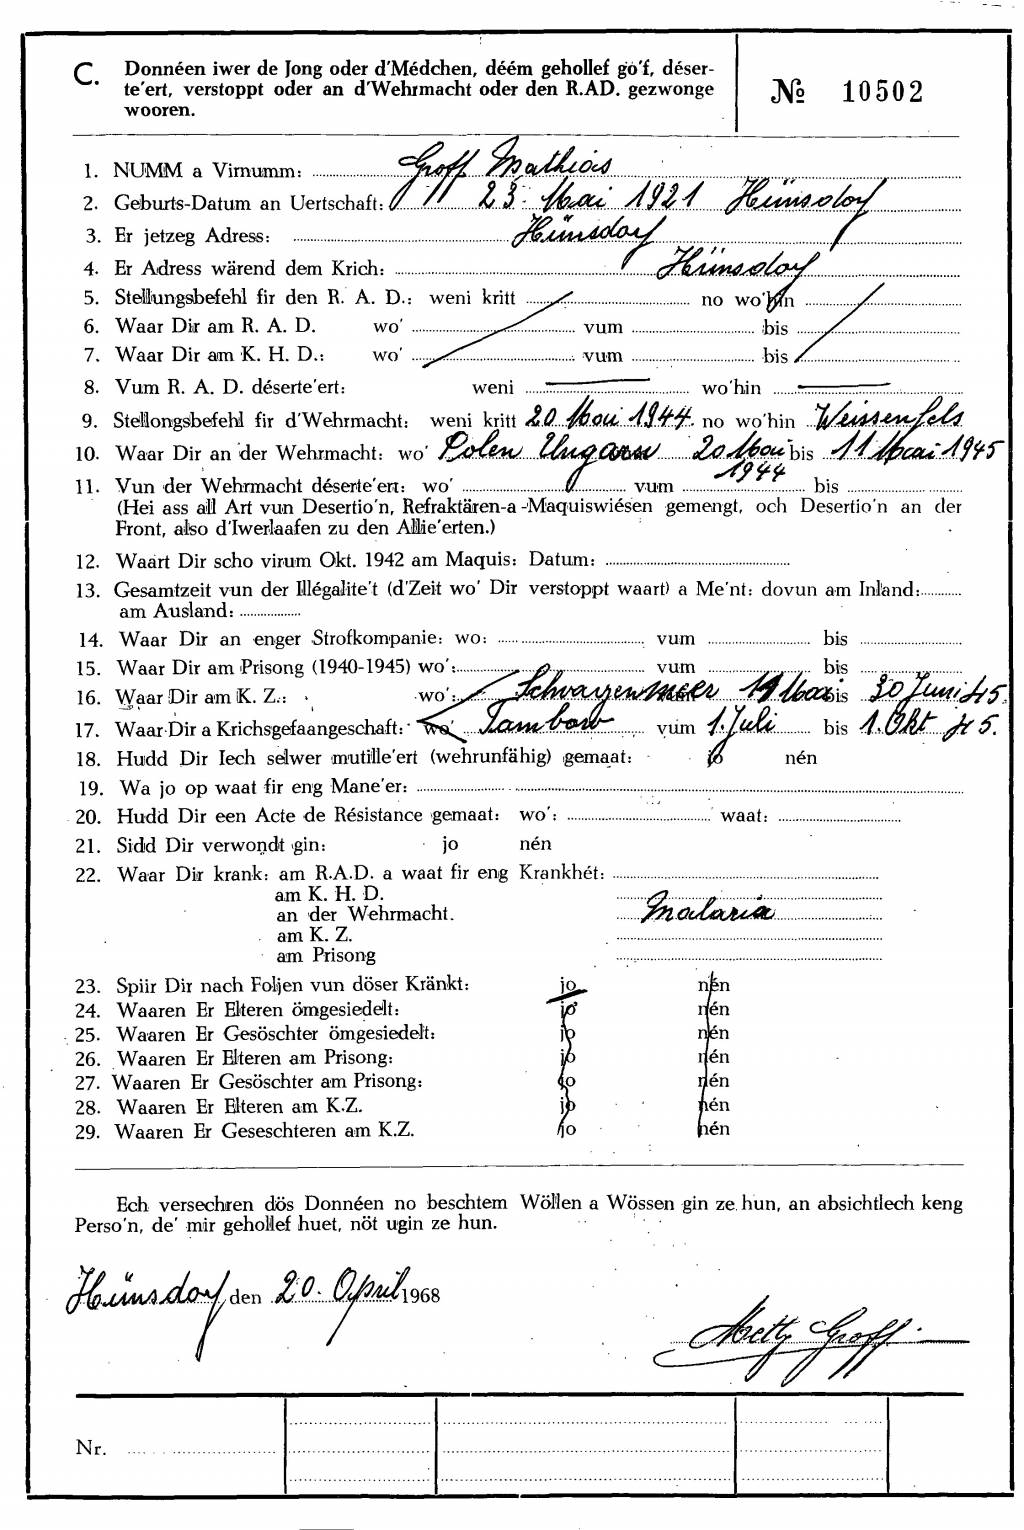 C. Donnéen iwer de Jong oder d'Médchen, déém gehollef go'f, déser-
te'ert, verstoppt oder an d'Wehrmacht oder den R.AD. gezwonge
wooren.
№ 10502
1. NUMM a Virnumm: Groff Mathias
2. Geburts-Datum an Uertschaft: 23. Mai 1921 Hünsdorf
3. Er jetzeg Adress: Hünsdorf
4. Er Adress wärend dem Krich: Hünsdorf
5. Stellungsbefehl fir den R. A. D.: weni kritt no wo'hin
6. Waar Dir am R. A. D. wo' vum bis
7. Waar Dir am K. H. D.: wo' vum bis
8. Vum R. A. D. déserte'ert: weni wo'hin
9. Stellongsbefehl fir d'Wehrmacht: weni kritt 20 Mai 1944 no wo'hin Weissenfels
10. Waar Dir an der Wehrmacht: wo' Polen Ungarn 20 Mai bis 11 Mai 1945
1944
11. Vun der Wehrmacht déserte'ert: wo' vum bis
(Hei ass all Art vun Desertio'n, Refraktären-a-Maquiswiésen gemengt, och Desertio'n an der
Front, also d'Iwerlaafen zu den Allie'erten.)
12. Waart Dir scho virum Okt. 1942 am Maquis: Datum:
13. Gesamtzeit vun der Illégalite't (d'Zeit wo' Dir verstoppt waart) a Me'nt: dovun am Inland:
am Ausland:
14. Waar Dir an enger Strofkompanie: wo: vum bis
15. Waar Dir am Prisong (1940-1945) wo': vum bis
16. Waar Dir am K. Z.: wo': Schwarzenmeer 11 Mai bis 30 Juni 45.
17. Waar Dir a Krichsgefaangeschaft: wo' Tambow vum 1. Juli bis 1. Okt 45.
18. Hudd Dir Iech selwer mutille'ert (wehrunfähig) gemaat: jo nén
19. Wa jo op waat fir eng Mane'er:
20. Hudd Dir een Acte de Résistance gemaat: wo': waat:
21. Sidd Dir verwondt gin: jo nén
22. Waar Dir krank: am R.A.D. a waat fir eng Krankhét:
am K. H. D.
an der Wehrmacht. Malaria
am K. Z.
am Prisong
23. Spiir Dir nach Foljen vun döser Kränkt: jo nén
24. Waaren Er Elteren ömgesiedelt: jo nén
25. Waaren Er Gesöschter ömgesiedelt: jo nén
26. Waaren Er Elteren am Prisong: jo nén
27. Waaren Er Gesöschter am Prisong: jo nén
28. Waaren Er Elteren am K.Z. jo nén
29. Waaren Er Geseschteren am K.Z. jo nén
Ech versechren dös Donnéen no beschtem Wöllen a Wössen gin ze hun, an absichtlech keng
Perso'n, de' mir gehollef huet, nöt ugin ze hun.
Hünsdorf, den 20. April 1968
Metty Groff.
Nr.